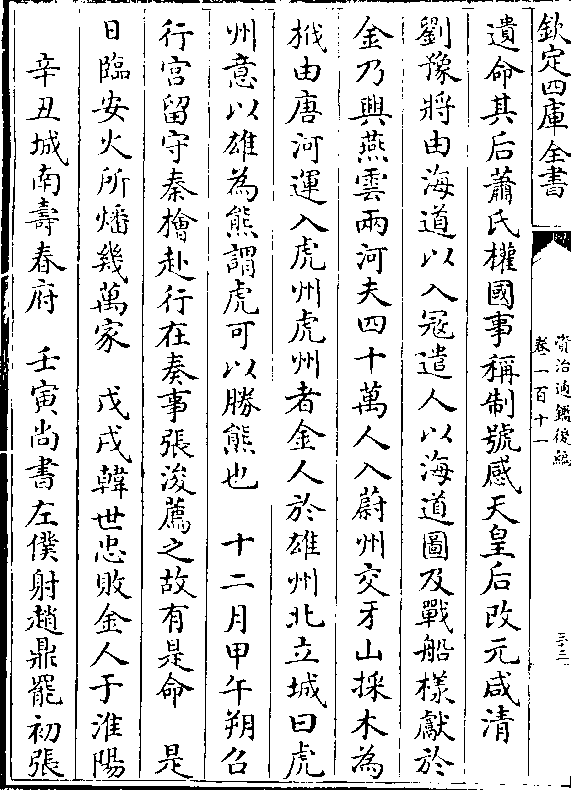 欽定四庫全書
資治通鑑後編
卷一百十一
三十三
遺命其后蕭氏權國事稱制號感天皇后改元咸清
劉豫將由海道以入冦遣人以海道圖及戰船樣獻於
金乃興燕雲兩河夫四十萬人入蔚州交牙山採木為
栰由唐河運入虎州虎州者金人於雄州北立城曰虎
州意以雄為熊謂虎可以勝熊也　十二月甲午朔召
行宫留守秦檜赴行在奏事張浚薦之故有是命　是
日臨安火所燔幾萬家　戊戌韓世忠敗金人于淮陽
辛丑城南壽春府　壬寅尚書左僕射趙鼎罷初張